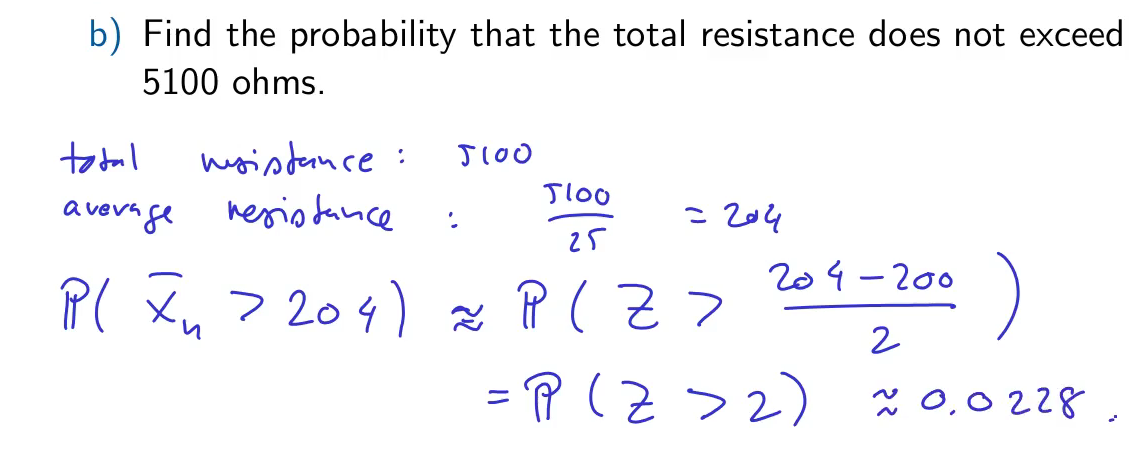 b) Find the probability that the total resistance does not exceed
5100 ohms.
total resistance : 5100
average resistance : 5100/25 = 204
ℙ( X̄ₙ > 204 ) ≈ ℙ ( Z > (204 − 200)/2 )
= ℙ ( Z > 2 ) ≈ 0.0228 .